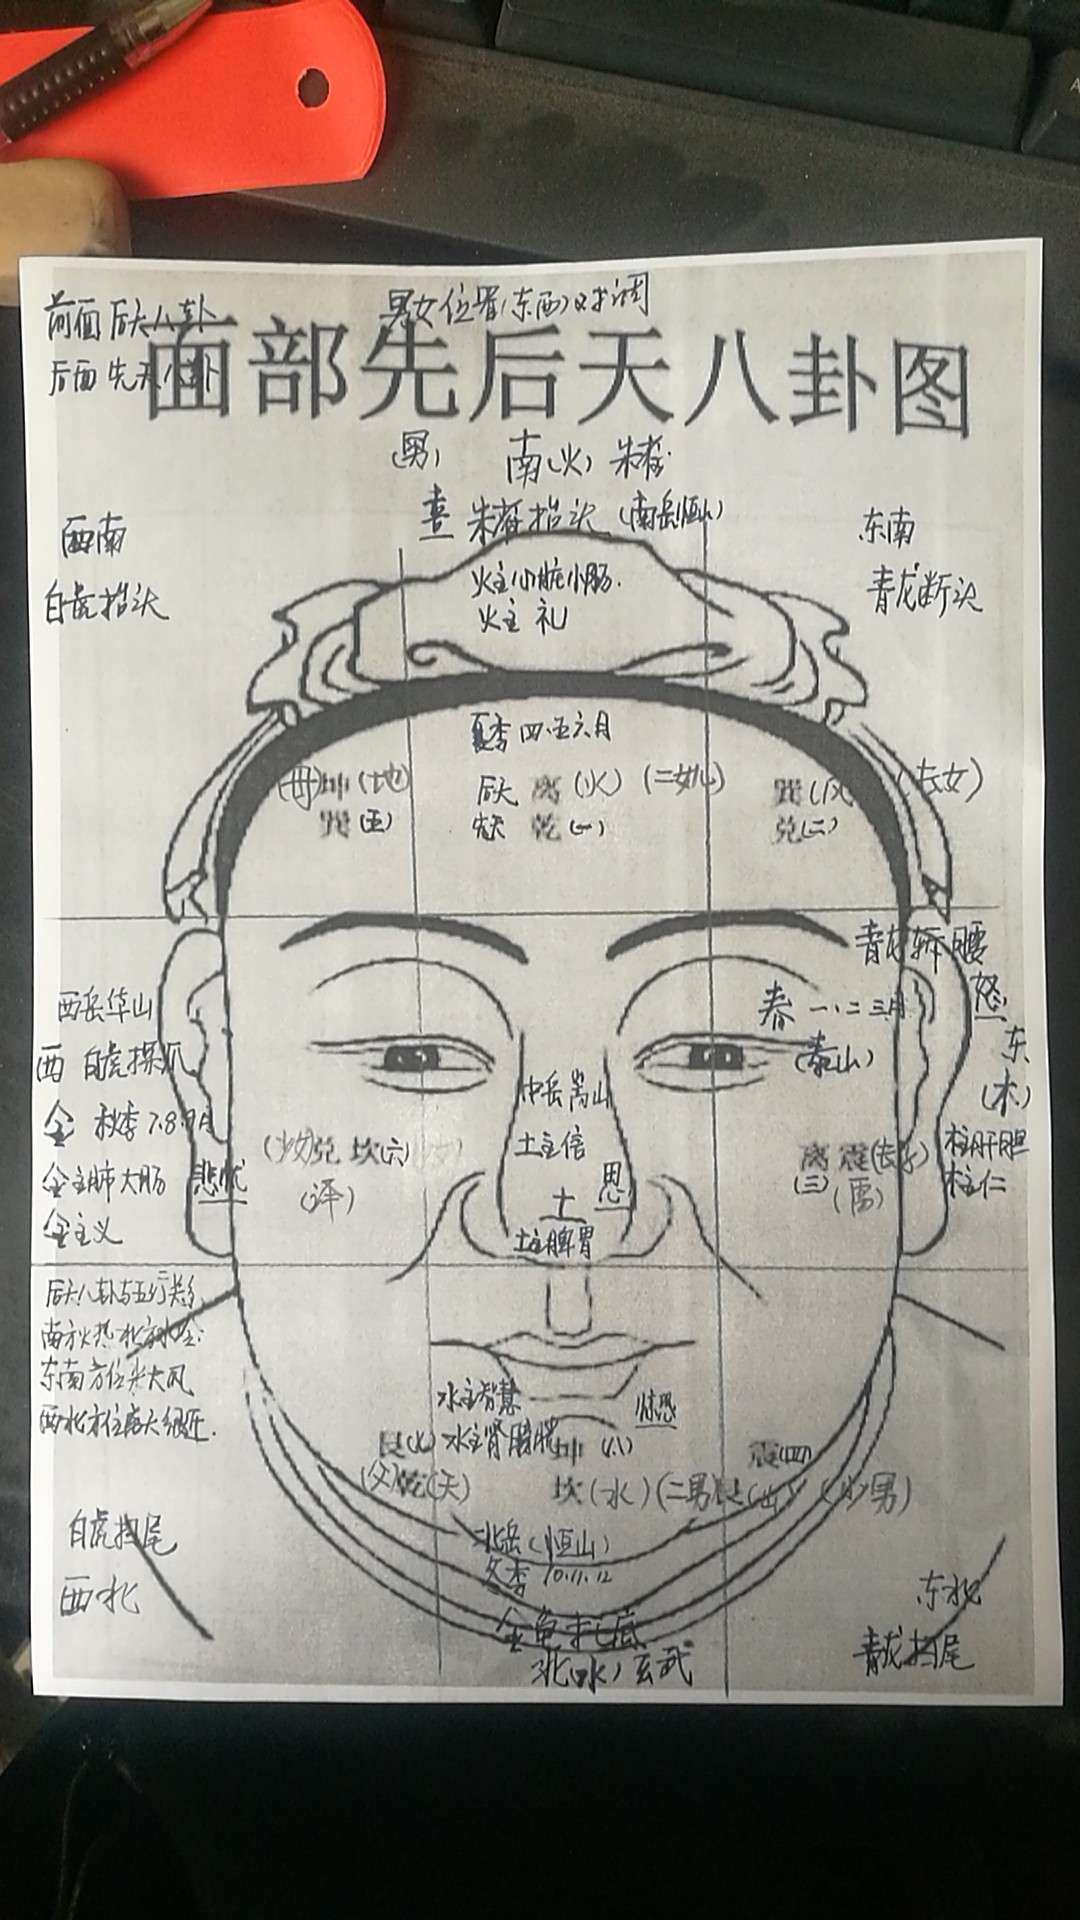 前面 后天八卦
男女位置(东西)对调
后面 先天八卦
面部先后天八卦图
(男) 南(火) 朱雀
喜 朱雀抬头 (南岳恒山)
西南
东南
白虎抬头
青龙断头
火主心脏小肠.
火主 礼
夏季 四.五六月
(母)坤(地)
后天 离(火) (二女)
巽(风) (长女)
巽(五)
先天 乾(一)
兑(二)
青龙斩腰
怒
西岳华山
春 一.二三月
西 白虎探爪
(泰山)
东
(木)
中岳嵩山
金 秋季 7.8.9月
土主信
(少女)兑 坎(六)
离 震(长子)
(三) (雷)
(泽)
金主肺大肠 悲忧
土 思
土主脾胃
木主肝胆
木主仁
金主义
后天八卦与五行关系
南方火热 北方水冷.
东南方位来大风
西北方位高大
水主智慧
惊恐
艮(七) 水主肾膀胱
坤(八)
震(四)
(父)乾(天)
坎(水)(二男)
艮(山) (少男)
白虎扫尾
北岳(恒山)
冬季 10.11.12
西北
东北
金龟扎底
青龙扫尾
北(水)玄武